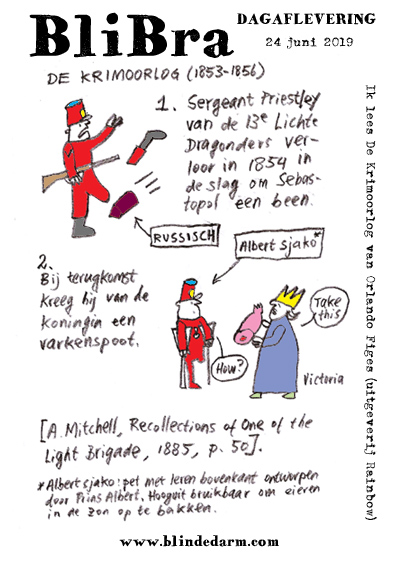 BliBra
DAGAFLEVERING
24 juni 2019
DE KRIMOORLOG (1853-1856)
1. Sergeant Priestley
van de 13e Lichte
Dragonders ver-
loor in 1854 in
de slag om Sebas-
topol een been.
RUSSISCH
Albert sjako*
2.
Bij terugkomst
kreeg hij van de
koningin een
varkenspoot.
How?
Take
this
Victoria
[A. Mitchell, Recollections of One of the
Light Brigade, 1885, p. 50].
*Albert sjako: pet met leren bovenkant ontworpen
door Prins Albert. Hooguit bruikbaar om eieren
in de zon op te bakken.
Ik lees De Krimoorlog van Orlando Figes (uitgeverij Rainbow)
www.blindedarm.com